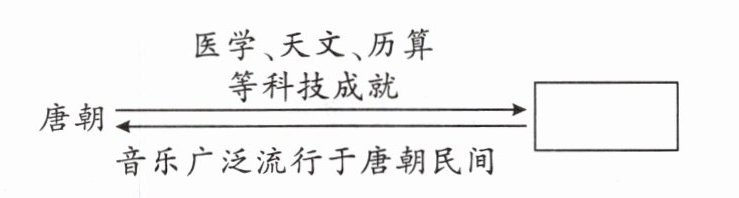 医学、天文、历算
等科技成就
唐朝
音乐广泛流行于唐朝民间